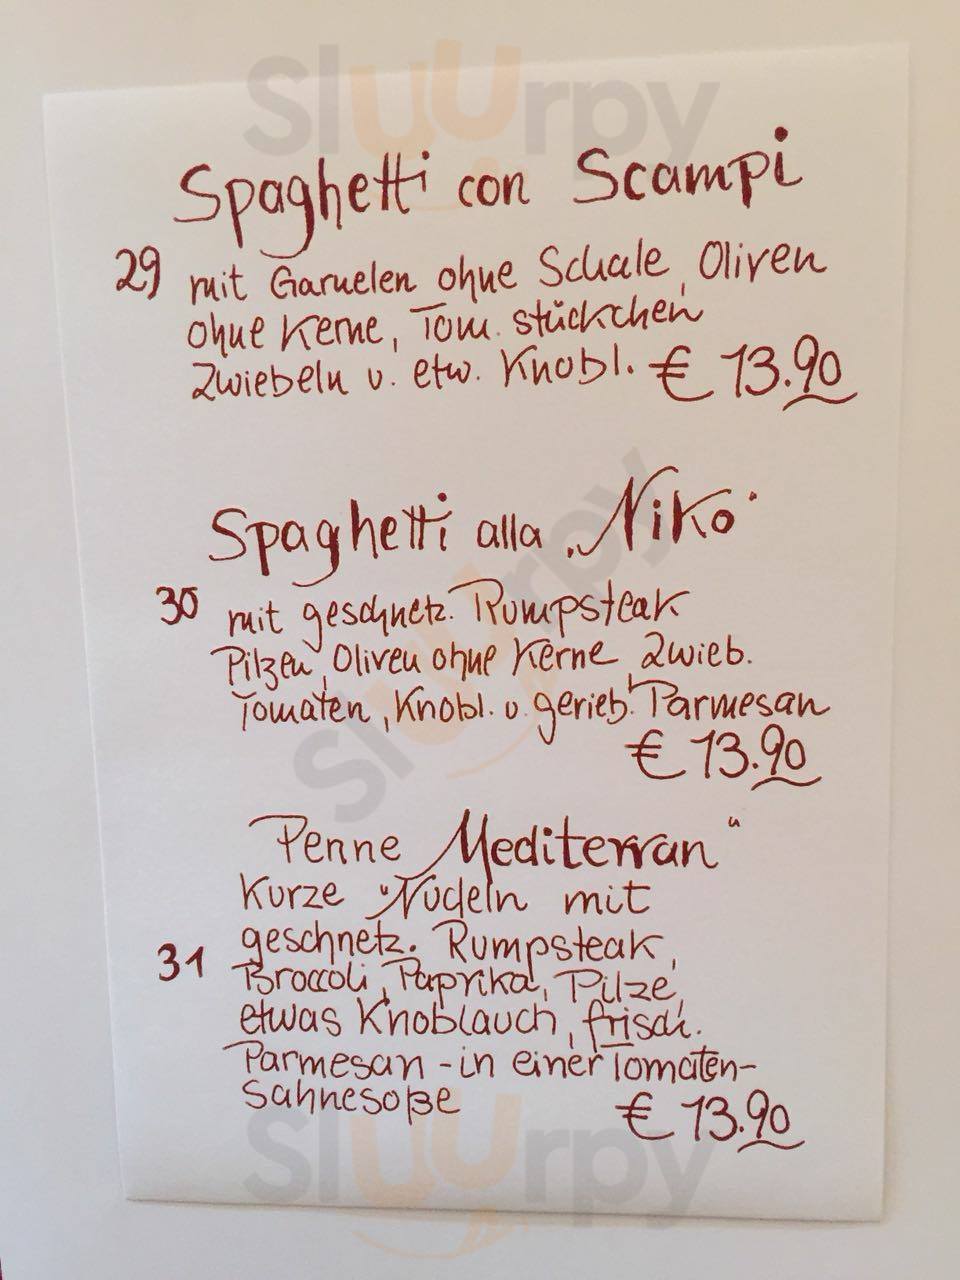 Sluurpy
Spaghetti con Scampi
29 mit Garnelen ohne Schale, Oliven
ohne Kerne, Tom. stückchen
Zwiebeln u. etw. Knobl. € 13.90
Spaghetti alla „Niko"
30 mit geschnetz. Rumpsteak
Pilzen, Oliven ohne Kerne, Zwieb.
Tomaten, Knobl. u. gerieb. Parmesan
€ 13.90
Sluurpy
Penne „Mediterran"
Kurze Nudeln mit
geschnetz. Rumpsteak,
31 Broccoli, Paprika, Pilze,
etwas Knoblauch, frisch.
Parmesan - in einer Tomaten-
sahnesoße € 13.90
Sluurpy